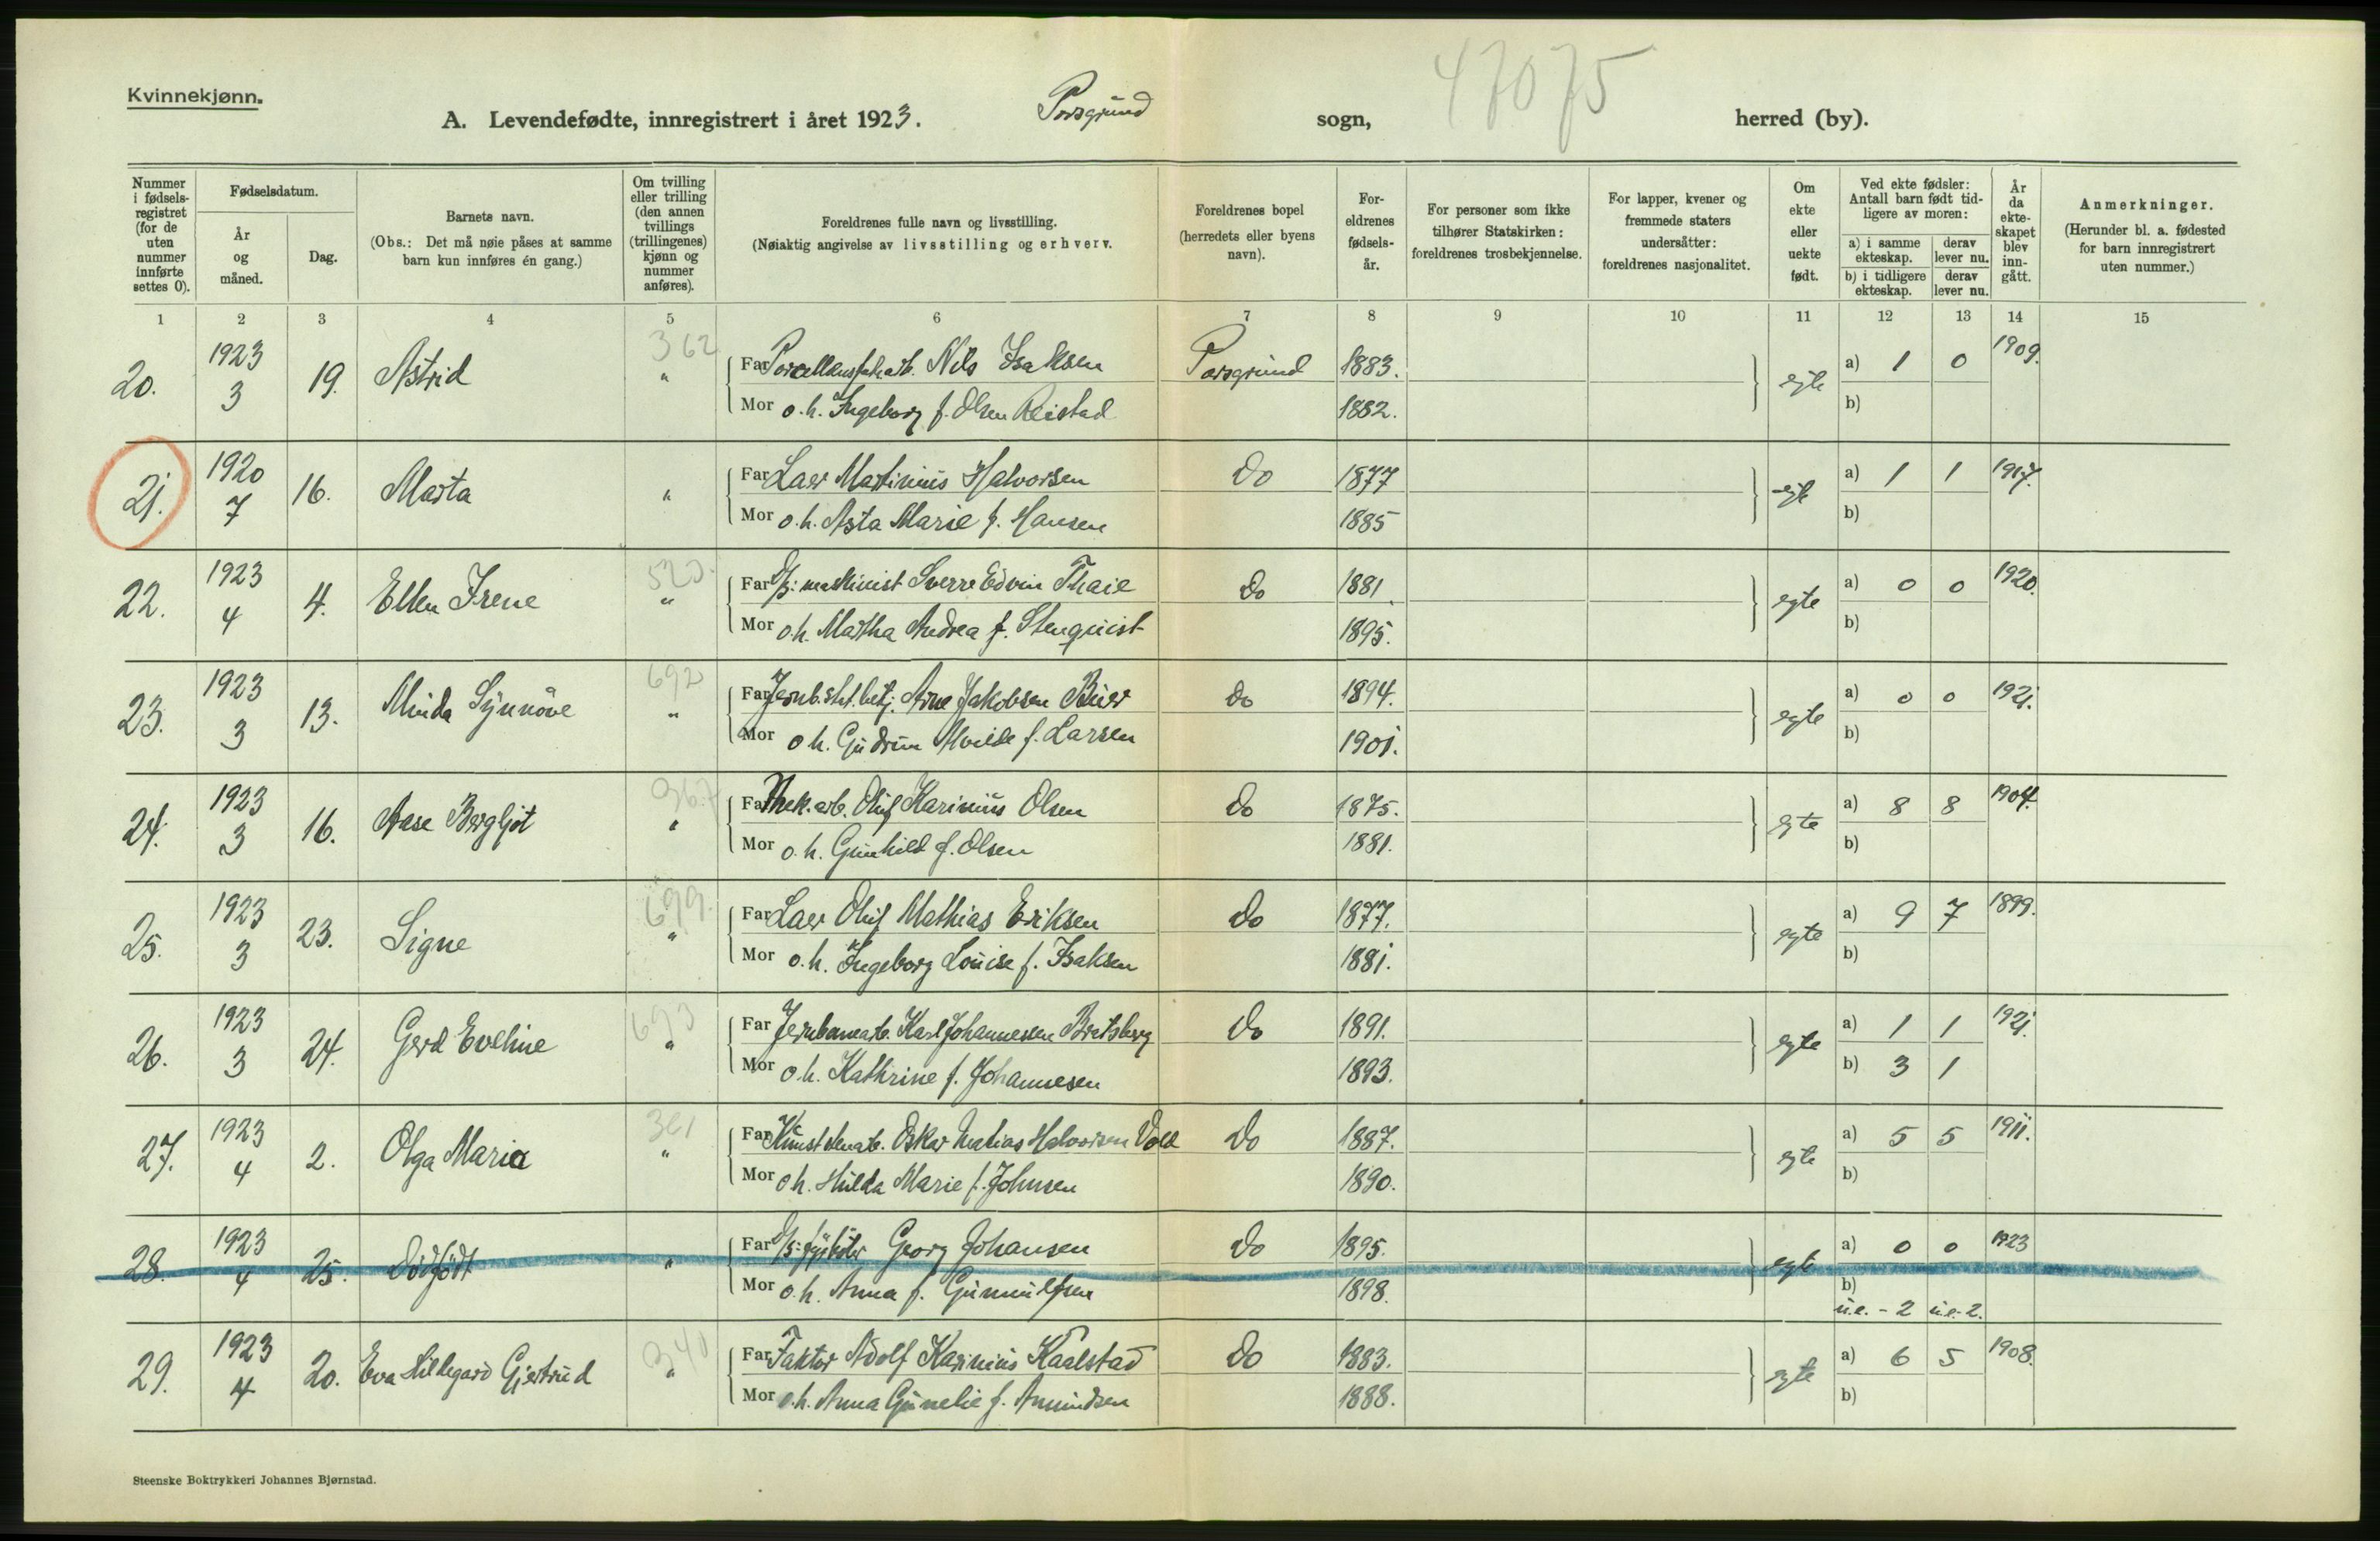 Kvinnekjønn.
A. Levendefødte, innregistrert i året 1923. Porsgrund sogn, 47075 herred (by).
Nummer i fødsels-registret (for de uten nummer innførte settes 0).
Fødselsdatum.
År og måned.
Dag.
Barnets navn.
(Obs.: Det må nøie påses at samme barn kun innføres én gang.)
Om tvilling eller trilling (den annen tvillings (trillingenes) kjønn og nummer anføres).
Foreldrenes fulle navn og livsstilling.
(Nøiaktig angivelse av livsstilling og erhverv.
Foreldrenes bopel (herredets eller byens navn).
For-eldrenes fødsels-år.
For personer som ikke tilhører Statskirken: foreldrenes trosbekjennelse.
For lapper, kvener og fremmede staters undersåtter: foreldrenes nasjonalitet.
Om ekte eller uekte født.
Ved ekte fødsler: Antall barn født tid-ligere av moren:
a) i samme ekteskap. derav lever nu.
b) i tidligere ekteskap. derav lever nu.
År da ekte-skapet blev inn-gått.
Anmerkninger.
(Herunder bl. a. fødested for barn innregistrert uten nummer.)
1 2 3 4 5 6 7 8 9 10 11 12 13 14 15
20. 1923 3 19. Astrid 362 " Far Porcellensfabarb. Nils Isaksen Porsgrund 1883. egte a) 1 0 1909.
Mor o.h. Ingeborg f. Olsen Reistad 1882. b)
21. 1920 7 16. Marta " Far Laer Martinius Halvorsen do 1877 a) 1 1 1917.
Mor o.h. Asta Marie f. Hansen 1885 b)
22. 1923 4 4. Ellen Irene " Far D/S: maskinist Sverre Edvin Thaie do 1881. egte a) 0 0 1920.
Mor o.h. Martha Andrea f. Stenquist 1895. b)
23. 1923 3 13. Minda Synnöve 692 " Far Jernb.st.betj. Arne Jakobsen do 1894. egte a) 0 0 1921.
Mor o.h. Gudrun f. Larsen 1901. b)
24. 1923 3 16. Aase Bergljot 367 " Far Mek.arb. Oluf Karinius Olsen do 1875. egte a) 8 8 1904.
Mor o.h. Gunhild f. Olsen 1881. b)
25. 1923 3 23. Signe 699. " Far Laer Oluf Mathias Eriksen do 1877. egte a) 9 7 1899.
Mor o.h. Ingeborg Louise f. Isaksen 1881. b)
26. 1923 3 24. Gerd Eveline 693 " Far Jernbanearb. Karl Johannesen Bratsberg do 1891. egte a) 1 1 1921.
Mor o.h. Kathrine f. Johannesen 1893. b) 3 1
27. 1923 4 2. Olga Maria 361 " Far Oskar Matias Halvorsen Vold do 1887. egte a) 5 5 1911.
Mor o.h. Hilda Marie f. Johnsen 1890. b)
28. 1923 4 25. Dödfödt " Far D/S: fyrböter Georg Johansen do 1895. egte a) 0 0 1923
Mor o.h. Anna f. Gunnulfsen 1898. b)
u.e. - 2 u.e. 2.
29. 1923 4 20. Eva Hildegard Gjertrud 340 " Far Faktor Adolf Karinius Kaalstad do 1883. egte a) 6 5 1908.
Mor o.h. Anna Gunelie f. Amundsen 1888. b)
Steenske Boktrykkeri Johannes Bjørnstad.